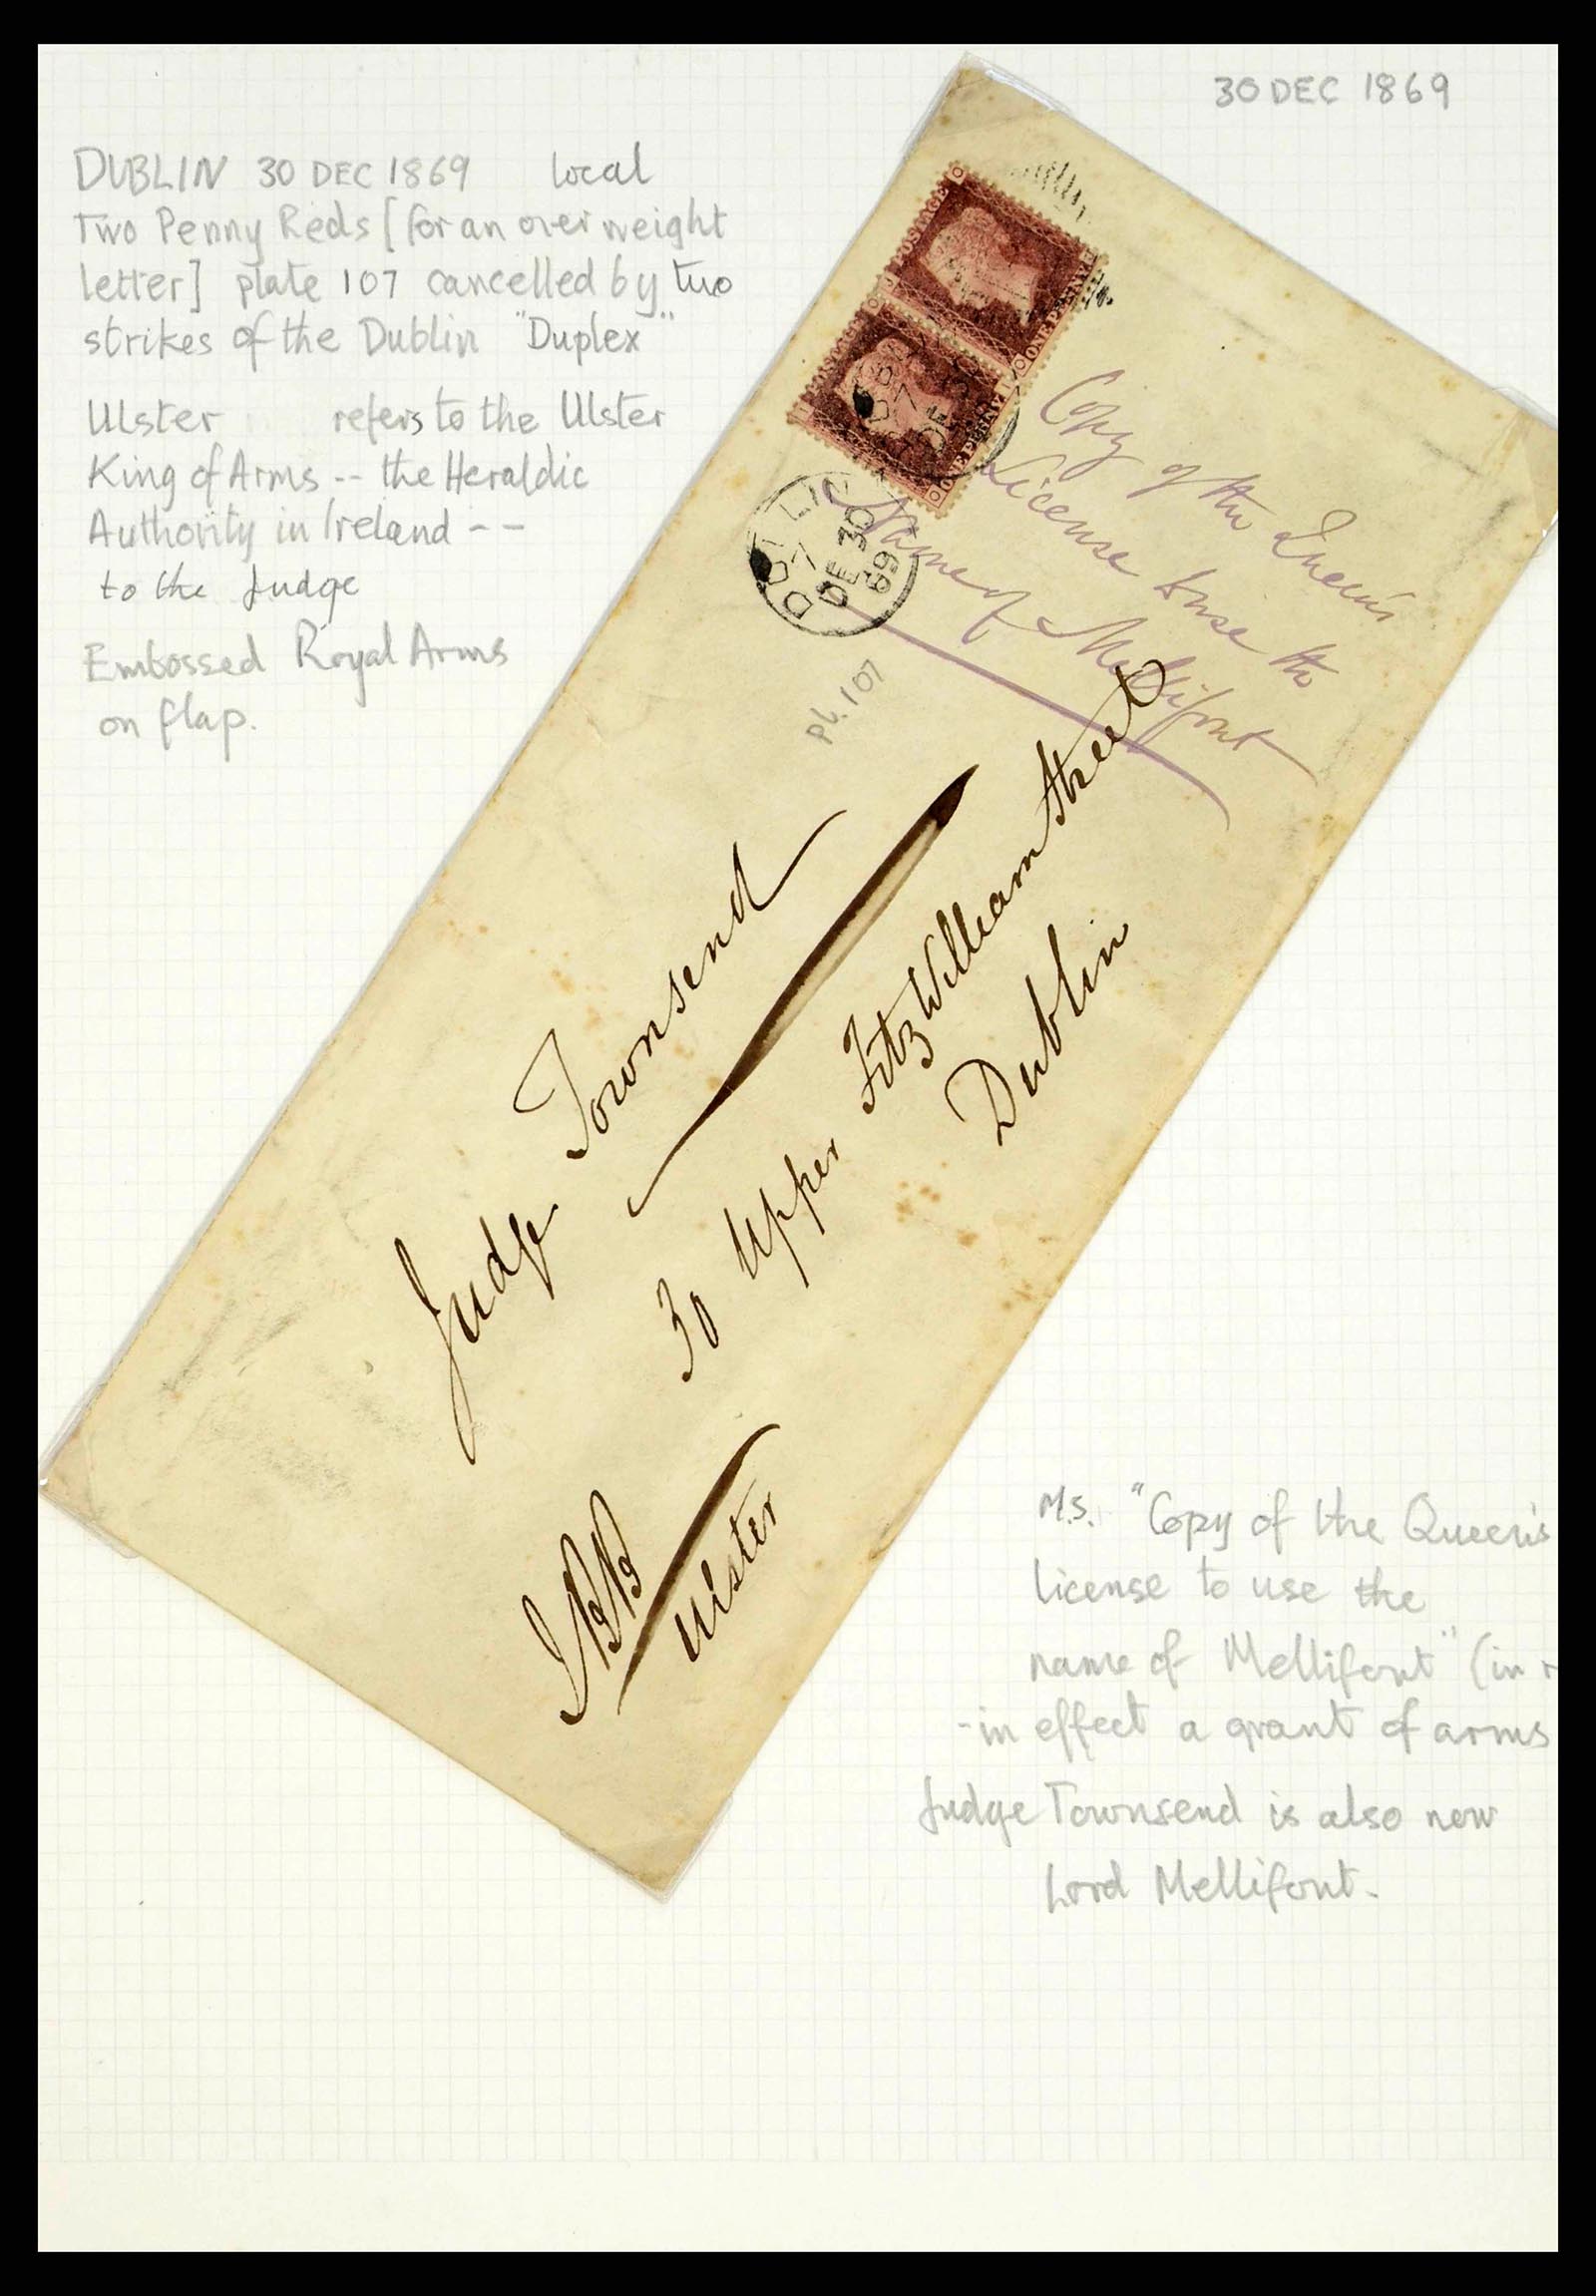 30 DEC 1869
DUBLIN 30 DEC 1869 local
Two Penny Reds [for an over weight
letter] plate 107 cancelled by two
strikes of the Dublin "Duplex"
Ulster refers to the Ulster
King of Arms -- the Heraldic
Authority in Ireland --
to the Judge
Embossed Royal Arms
on flap.
POSTAGE
ONE PENNY
POSTAGE
ONE PENNY
DUBLIN
7
DE 30
69
Copy of the Queen's
License to use the
Name of Mellifont
Pl. 107
Judge Townsend
30 Upper FitzWilliam Street
Dublin
JBB
Ulster
M.S. "Copy of the Queen's
license to use the
name of Mellifont" (in
-in effect a grant of arms
Judge Townsend is also now
Lord Mellifont.